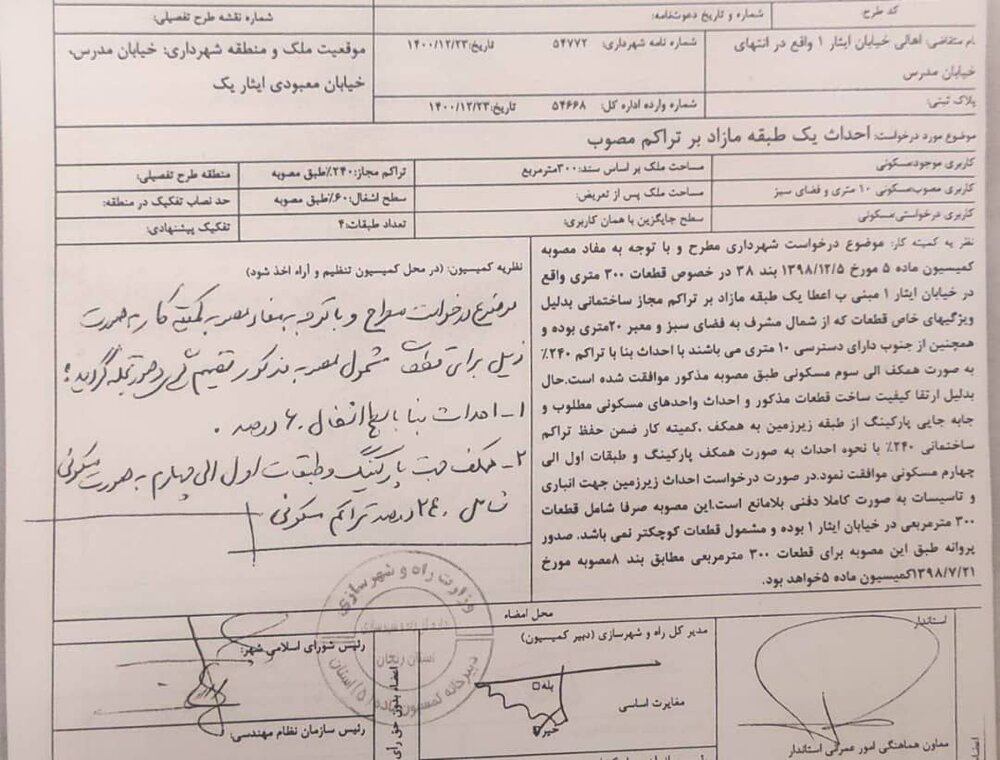 کد طرح:
شماره و تاریخ دعوتنامه:
شماره نقشه طرح تفصیلی:
نام متقاضی: اهالی خیابان ایثار ۱ واقع در انتهای
خیابان مدرس
شماره نامه شهرداری: ۵۴۷۷۲ تاریخ:۱۴۰۰/۱۲/۲۳
موقعیت ملک و منطقه شهرداری: خیابان مدرس،
خیابان معبودی ایثار یک
پلاک ثبتی:
شماره وارده اداره کل: ۵۴۶۶۸ تاریخ:۱۴۰۰/۱۲/۲۳
موضوع مورد درخواست: احداث یک طبقه مازاد بر تراکم مصوب
کاربری موجود:مسکونی
مساحت ملک بر اساس سند:۳۰۰مترمربع
تراکم مجاز:۲۴۰٪طبق مصوبه
منطقه طرح تفصیلی:
کاربری مصوب:مسکونی ۱۰ متری و فضای سبز
مساحت ملک پس از تعریض:
سطح اشغال:۶۰٪طبق مصوبه
حد نصاب تفکیک در منطقه:
کاربری درخواستی:مسکونی
سطح جایگزین با همان کاربری:
تعداد طبقات:۴
تفکیک پیشنهادی:
نظریه کمیته کار: موضوع درخواست شهرداری مطرح و با توجه به مفاد مصوبه
کمیسیون ماده ۵ مورخ ۱۳۹۸/۱۲/۵ بند ۳۸ در خصوص قطعات ۳۰۰ متری واقع
در خیابان ایثار ۱ مبنی ب اعطا یک طبقه مازاد بر تراکم مجاز ساختمانی بدلیل
ویژگیهای خاص قطعات که از شمال مشرف به فضای سبز و معبر ۲۰متری بوده و
همچنین از جنوب دارای دسترسی ۱۰ متری می باشند با احداث بنا با تراکم ۲۴۰٪
به صورت همکف الی سوم مسکونی طبق مصوبه مذکور موافقت شده است.حال
بدلیل ارتقا کیفیت ساخت قطعات مذکور و احداث واحدهای مسکونی مطلوب و
جابه جایی پارکینگ از طبقه زیرزمین به همکف ،کمیته کار ضمن حفظ تراکم
ساختمانی ۲۴۰٪ با نحوه احداث به صورت همکف پارکینگ و طبقات اول الی
چهارم مسکونی موافقت نمود.در صورت درخواست احداث زیرزمین جهت انباری
و تاسیسات به صورت کاملا دفنی بلامانع است.این مصوبه صرفا شامل قطعات
۳۰۰ مترمربعی در خیابان ایثار ۱ بوده و مشمول قطعات کوچکتر نمی باشد. صدور
پروانه طبق این مصوبه برای قطعات ۳۰۰ مترمربعی مطابق بند ۸مصوبه مورخ
۱۳۹۸/۷/۲۱کمیسیون ماده ۵خواهد بود.
نظریه کمیسیون: (در محل کمیسیون تنظیم و آراء اخذ شود)
موضوع درخواست مطرح و با توجه به مفاد مصوبه کمیته کار به صورت
ذیل برای قطعات مشمول مصوبه مذکور تصمیم گیری
۱- احداث بنا با سطح اشغال ۶۰ درصد .
۲- همکف جهت پارکینگ و طبقات اول الی چهارم به صورت مسکونی
شامل ۲۴۰ درصد تراکم مسکونی
محل امضاء
استاندار
معاون هماهنگی امور عمرانی استاندار
مدیر کل راه و شهرسازی (دبیر کمیسیون)
بله
مغایرت اساسی
خیر
اعضاء بدون حق رأی
رئیس شورای اسلامی شهر:
رئیس سازمان نظام مهندسی:
وزارت راه و شهرسازی
استان زنجان
دبیرخانه کمیسیون ماده (۵) استان